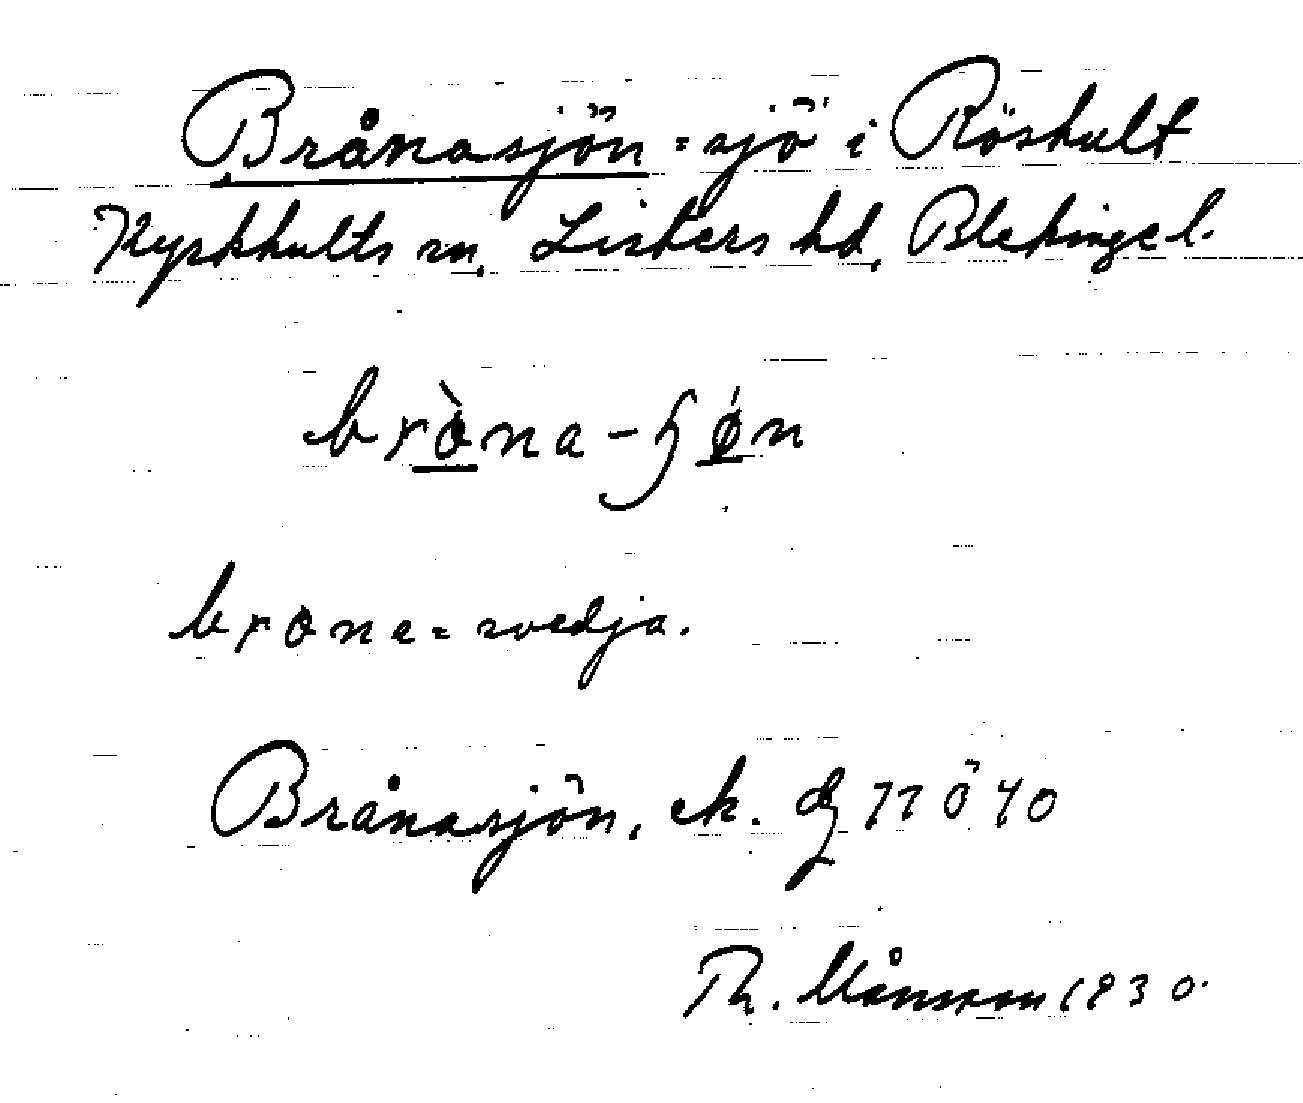 Brånasjön = sjö i Röshult
Kyrkhults sn, Listers hd, Blekinge l.
bròna-ɧǿn
brona = svedja.
Brånasjön, ek.
Th. Månsson 1930.